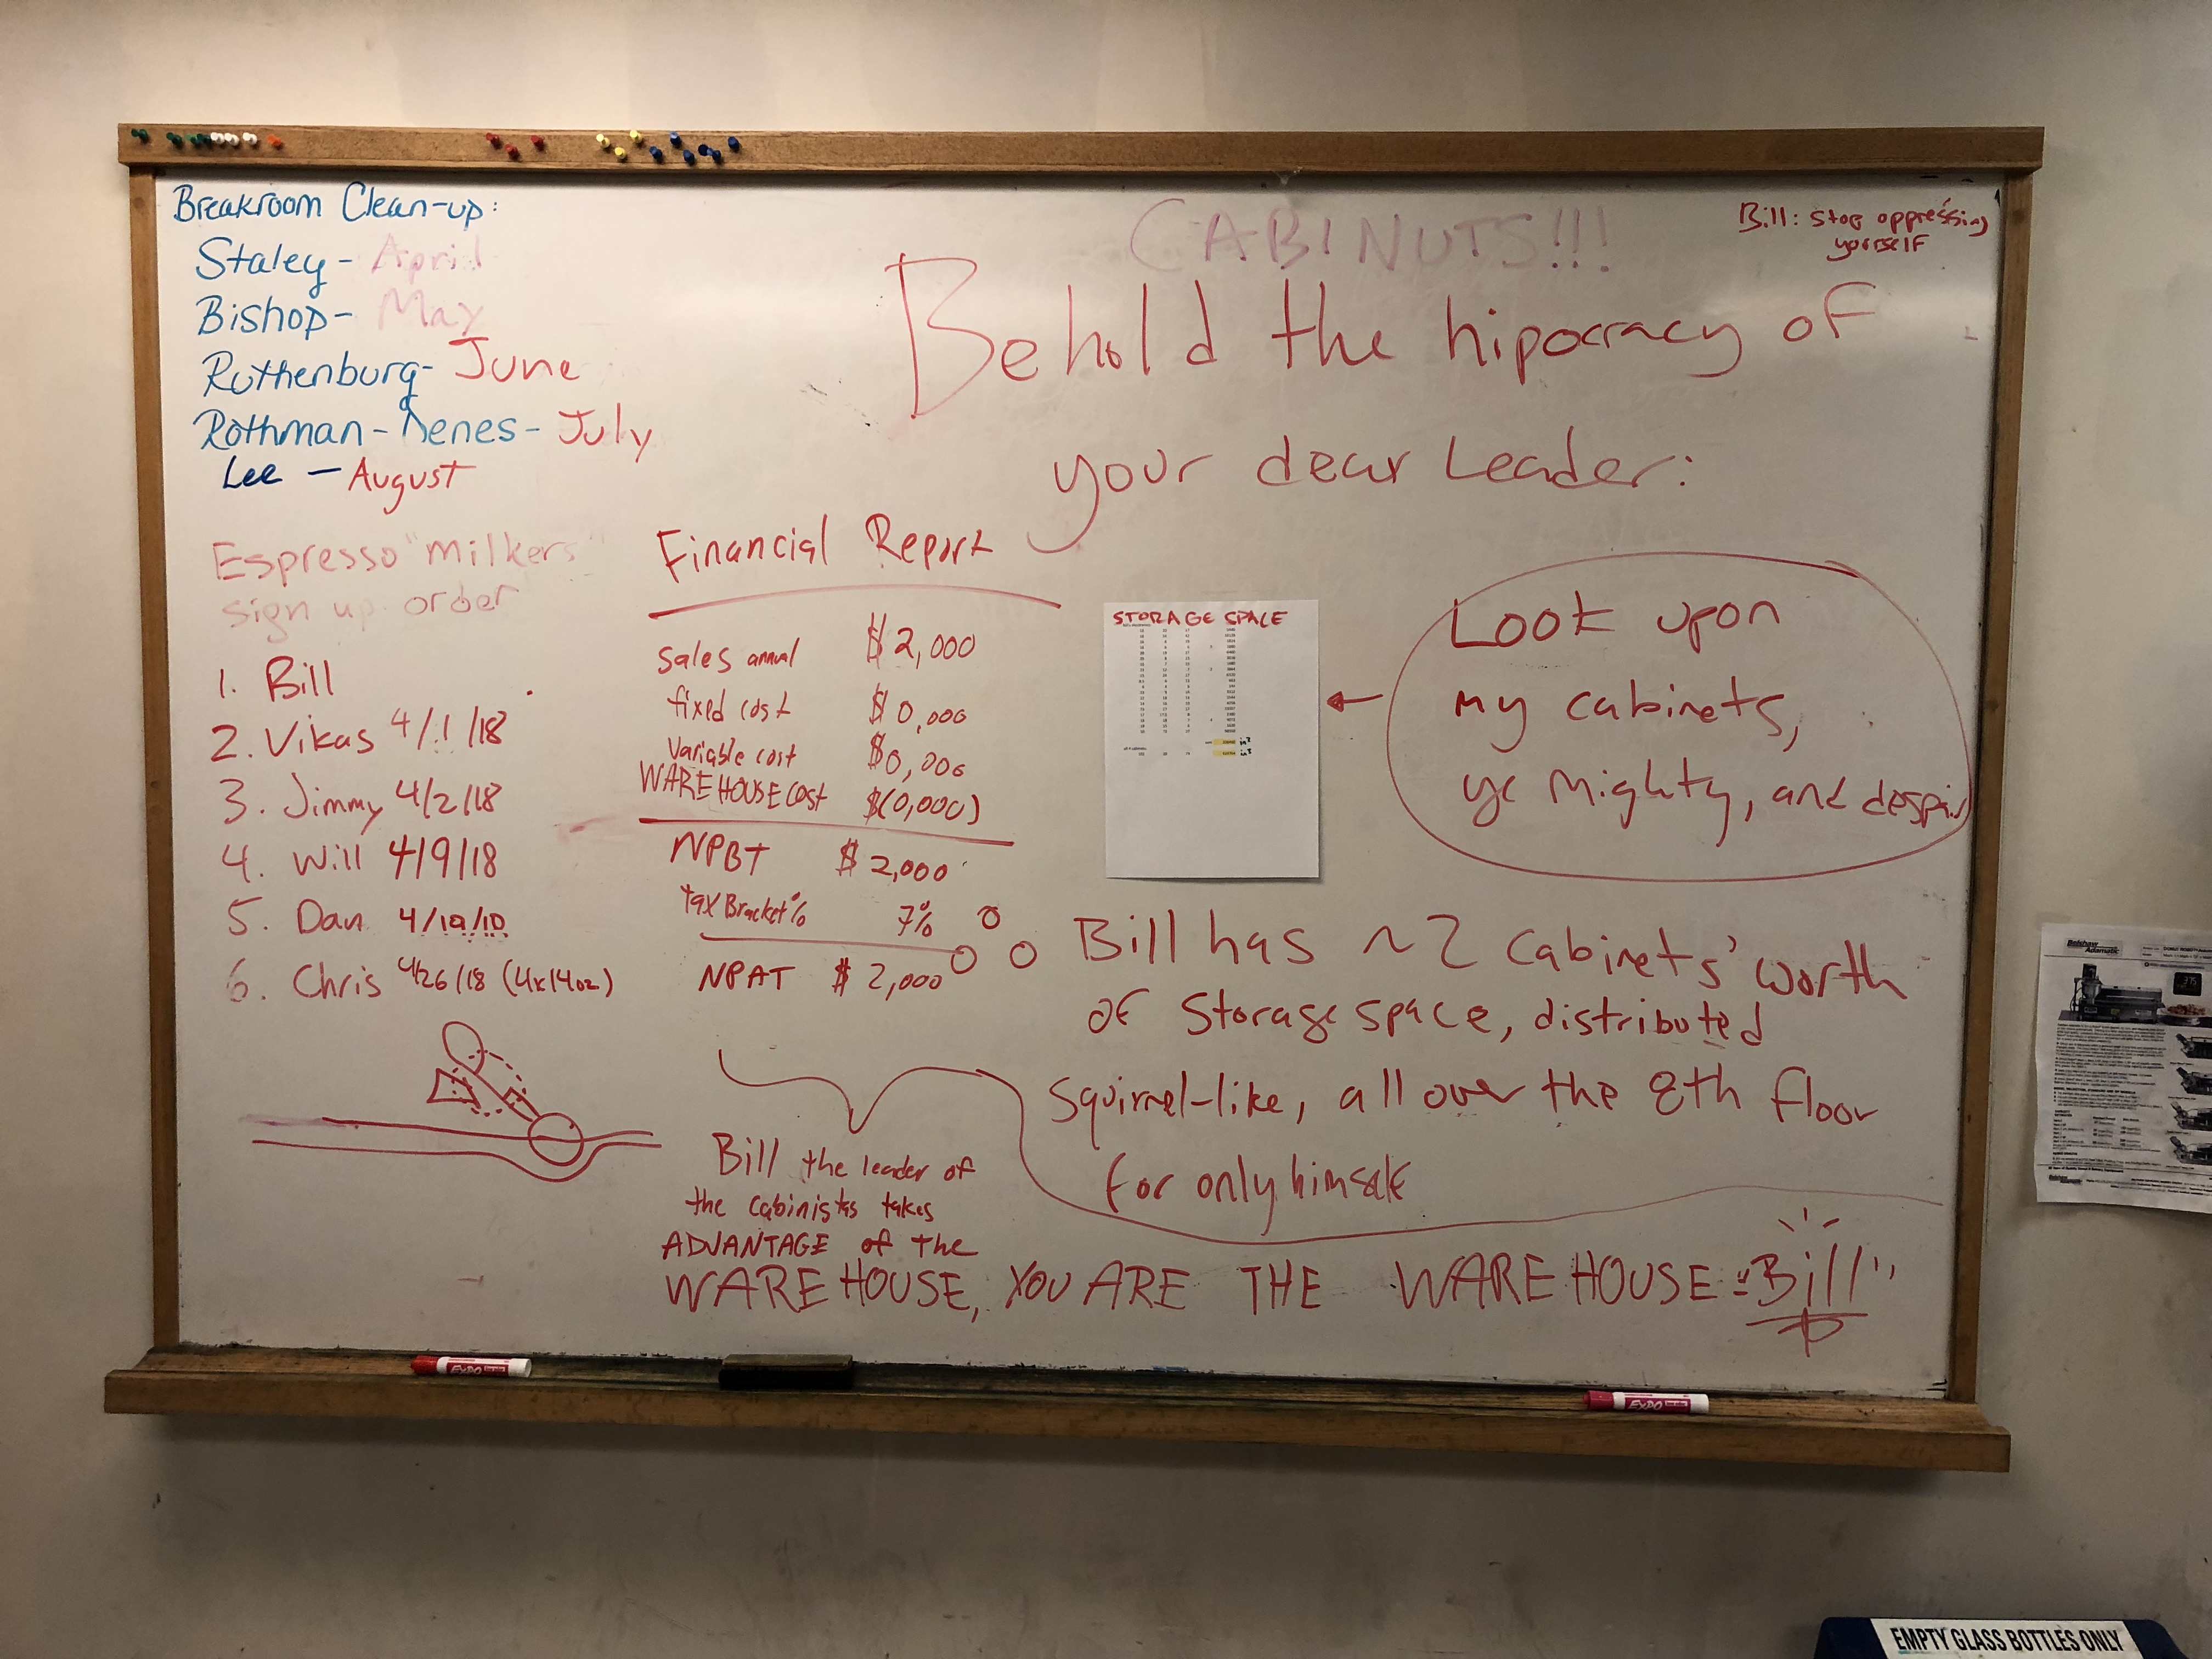 Breakroom Clean-up:
Staley - April
Bishop - May
Ruthenburg - June
Rothman - Denes - July
Lee - August
Espresso "milkers"
sign up order
1. Bill
2. Vikas 4/1/18
3. Jimmy 4/2/18
4. Will 4/9/18
5. Dan 4/10/10
6. Chris 4/26/18 (4x14oz)
CABINUTS!!!
Bill: stop oppressing
yourself
Behold the hipocracy of
your dear Leader:
Financial Report
Sales annual $2,000
fixed cost $0,000
Variable cost $0,000
WAREHOUSE cost $(0,000)
NPBT $2,000
tax Bracket % 7%
NPAT $2,000
STORAGE SPACE
Look upon
my cabinets,
ye Mighty, and despair
Bill has ~2 cabinets' worth
of storage space, distributed
squirrel-like, all over the 8th floor
for only himself
Bill the leader of
the cabinistas takes
ADVANTAGE of the
WAREHOUSE, YOU ARE THE WAREHOUSE "Bill"
Belshaw
Adamatic
EMPTY GLASS BOTTLES ONLY
EXPO
EXPO